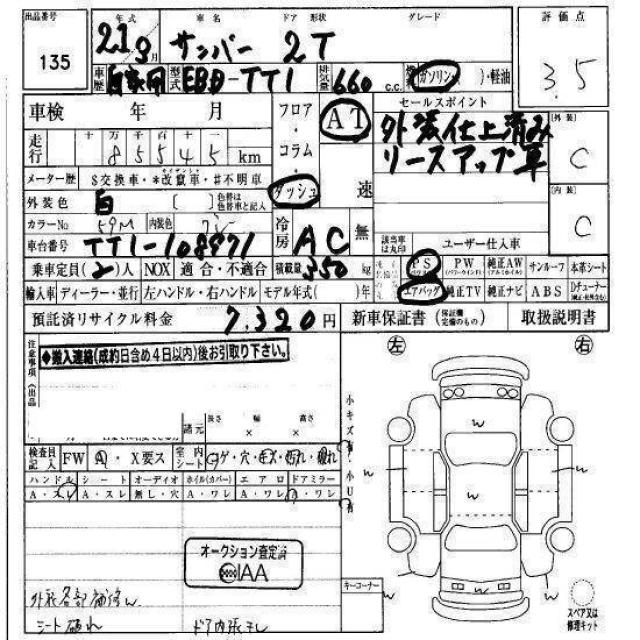 出品番号 年式 車名 ドア 形状 グレード 評価点
135 21 9月 サンバー 2T 3.5
車歴 自家用 型式 EBD-TT1 排気量 660 c.c. 燃料 ガソリン・( )・軽油
車検 年 月 フロア・コラム・ダッシュ AT 速 セールスポイント
外装仕上済み
リースアップ車
[外装] C
[内装] C
走行 十 万 千 百 十 一
85545 km
メーター歴 $交換車・*改竄車・#不明車
外装色 白 [ ] 色替は色替車と記入
カラーNo 59M 内装色 グレー
車台番号 TT1-108971
冷房 AC 無
該当車は丸印 ユーザー仕入車
乗車定員(2)人 NOX 適合・不適合 積載量 350 kg
PS PW 純正AW サンルーフ 本革シート
輸入車 ディーラー・並行 左ハンドル・右ハンドル モデル年式( )年
エアバッグ 純正TV 純正ナビ ABS Dチューナー
預託済リサイクル料金 7,320円 新車保証書(保証欄完備のもの) 取扱説明書
注意事項
◆搬入連絡(成約日含め4日以内)後お引取り下さい。
左 右
諸元 長さ × 幅 × 高さ
小キズ有・小U有
検査員記入 FW A・X要ス 室内シート コゲ・穴・キズ・汚れ・破れ
ハンドル シート オーディオ ホイル(カバー) エアロ ドアミラー
A・スレ A・スレ 無し・穴 A・ワレ A・ワレ A・ワレ
w
w
w
w
w
オークション査定済
IAA
外装各部補修w
シート破れ ドア内張干レ
キーコーナー
スペア又は修理キット